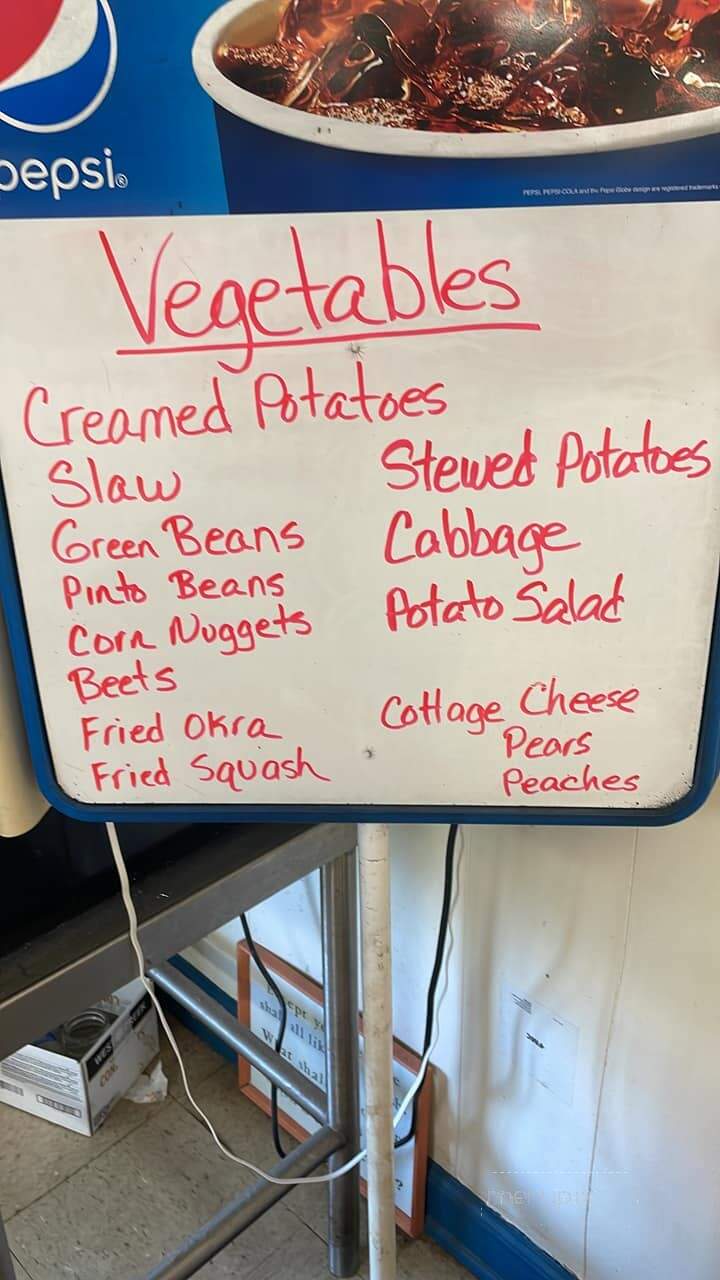 pepsi®
PEPSI, PEPSI-COLA and the Pepsi Globe design are registered trademarks
Vegetables
Creamed Potatoes
Slaw
Green Beans
Pinto Beans
Corn Nuggets
Beets
Fried Okra
Fried Squash
Stewed Potatoes
Cabbage
Potato Salad
Cottage Cheese
Pears
Peaches
shall all
What shal
?